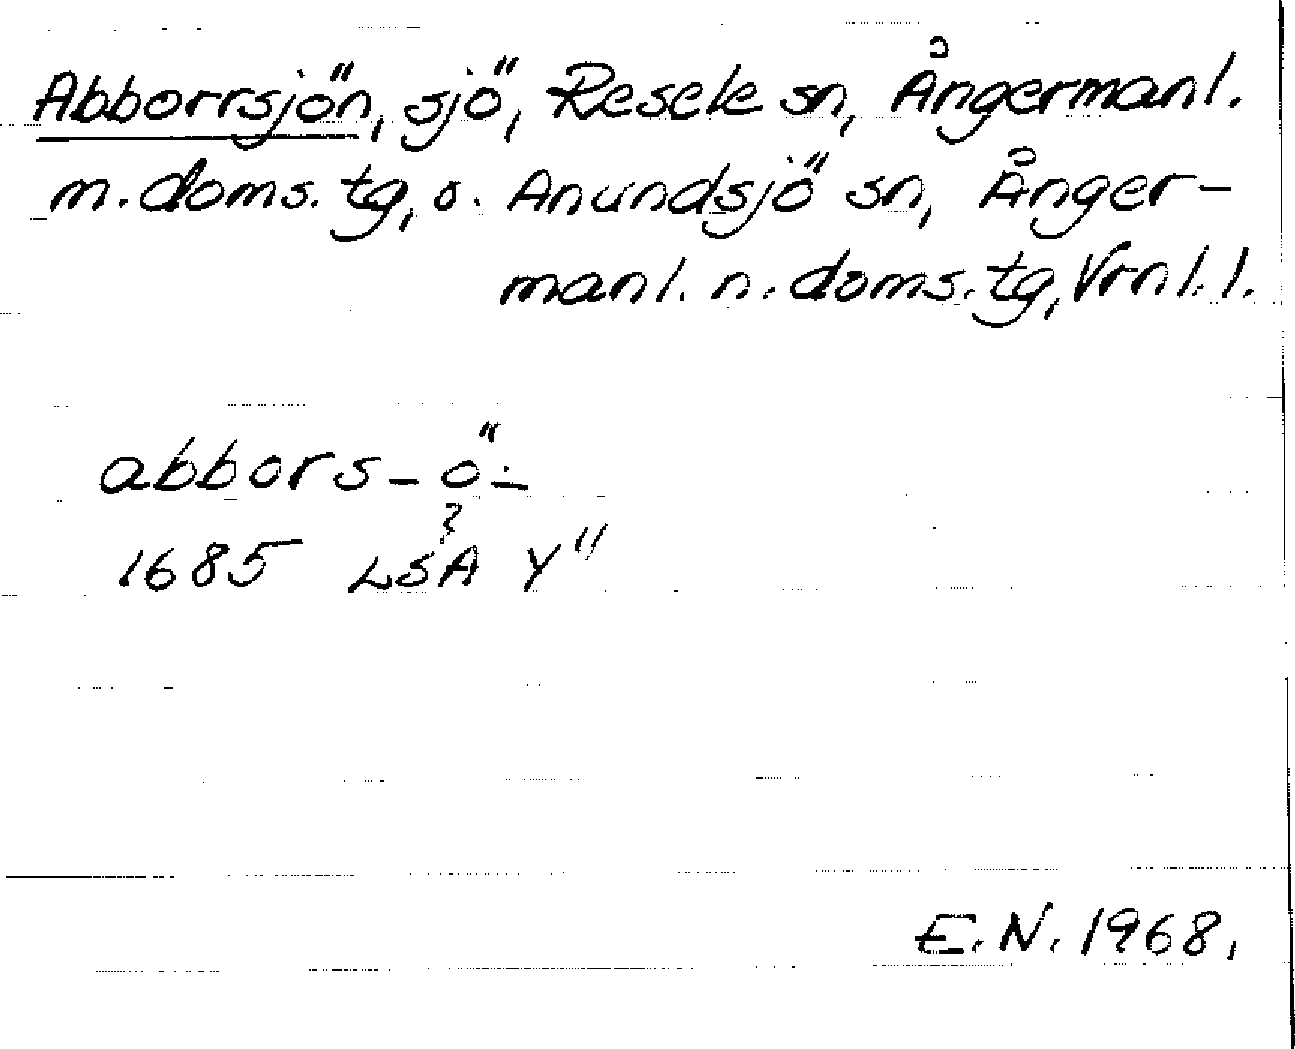 Abborrsjön, sjö, Resele sn, Ångermanl.
m. doms. tg, o. Anundsjö sn, Ånger-
manl. n. doms. tg, Vrnl. l.
abbors - ö -
?
1685 LSA Y"
E. N. 1968.